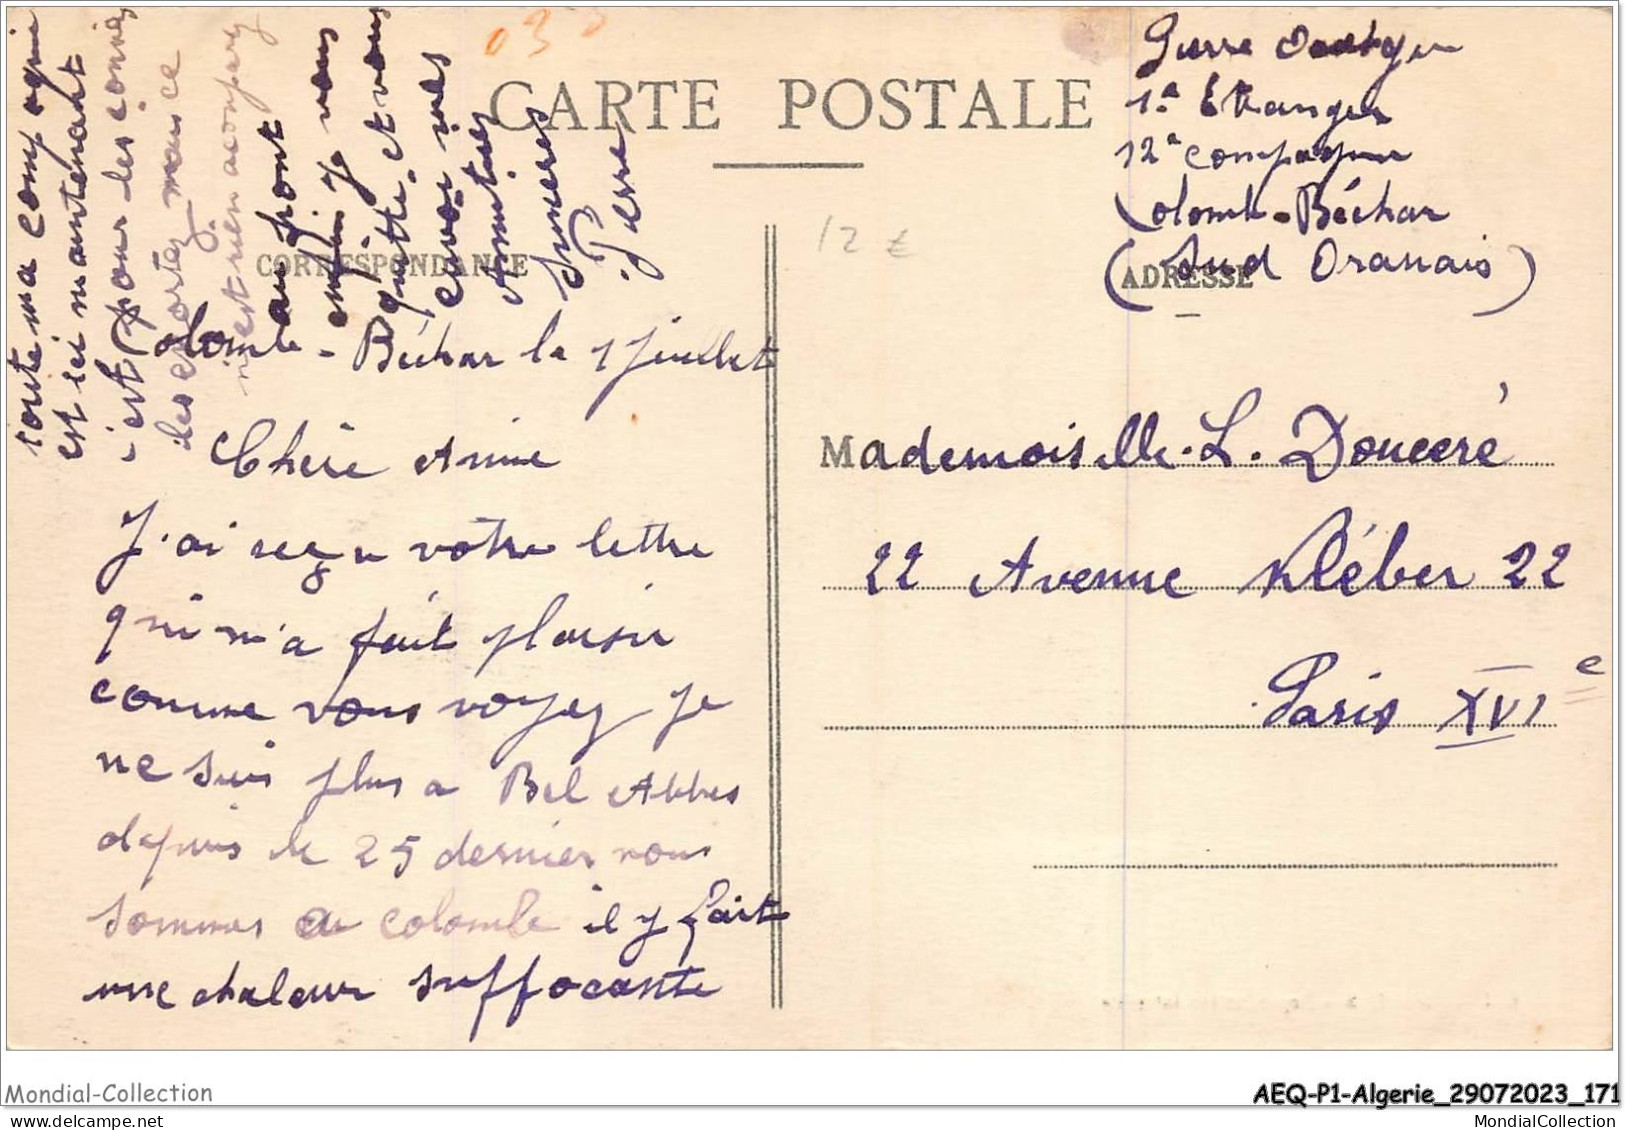 CARTE POSTALE
CORRESPONDANCE
ADRESSE
Pierre
1e Etranger
12e compagnie
Colomb-Béchar
(Sud Oranais)
12 €
Mademoiselle. L. Douceré
22 Avenue Kléber 22
Paris XVIe
Colomb-Béchar le 1 juillet
Chère Amie
J'ai reçu votre lettre
qui m'a fait plaisir
comme vous voyez je
ne suis plus a Bel Abbes
depuis le 25 dernier nous
sommes a colomb il y fait
une chaleur suffocante
toute ma compagnie
est ici maintenant
c'est pour les
les mais ce
n'est rien
au front
enfin je vous
quitte et vous
envoi mes
Amities
Sinceres
Pierre
Mondial-Collection
AEQ-P1-Algerie_29072023_171
www.delcampe.net
MondialCollection